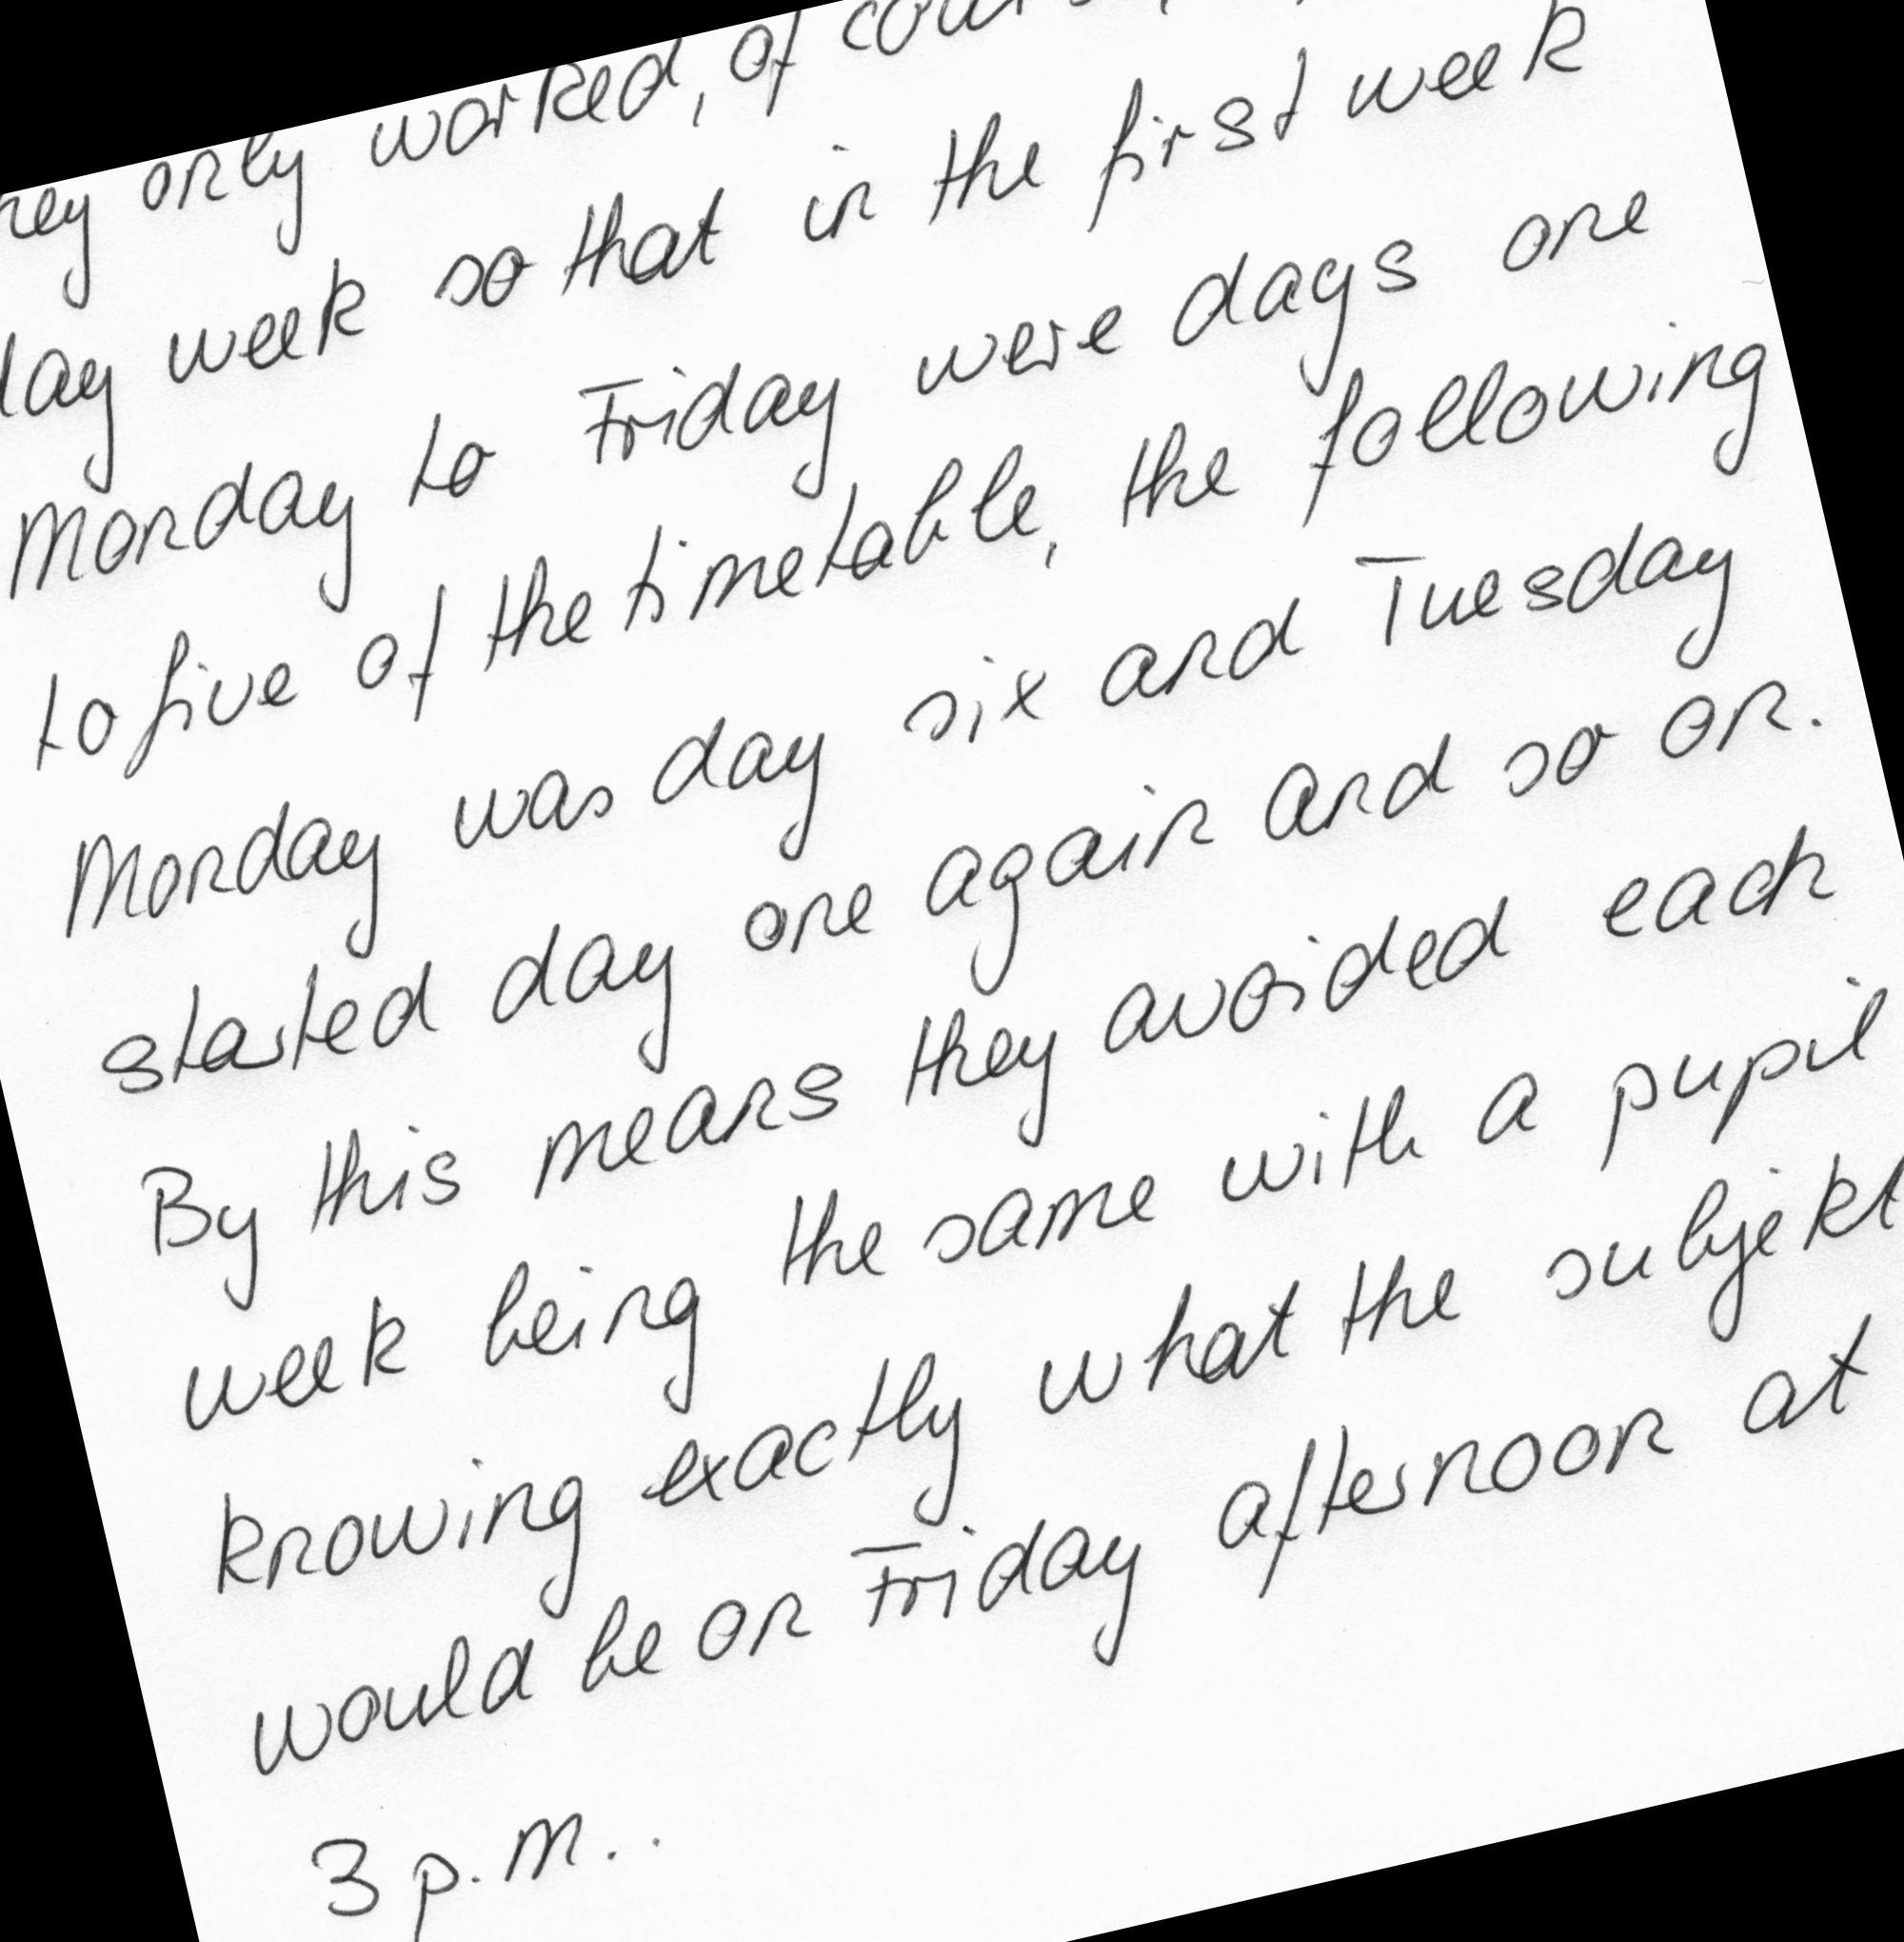 only worked, of
week so that in the first week
Monday to Friday were days one
to five of the timetable, the following
Monday was day six and Tuesday
started day one again and so on.
By this means they avoided each
week being the same with a pupil
knowing exactly what the subjekt
would be on Friday afternoon at
3 p.m..